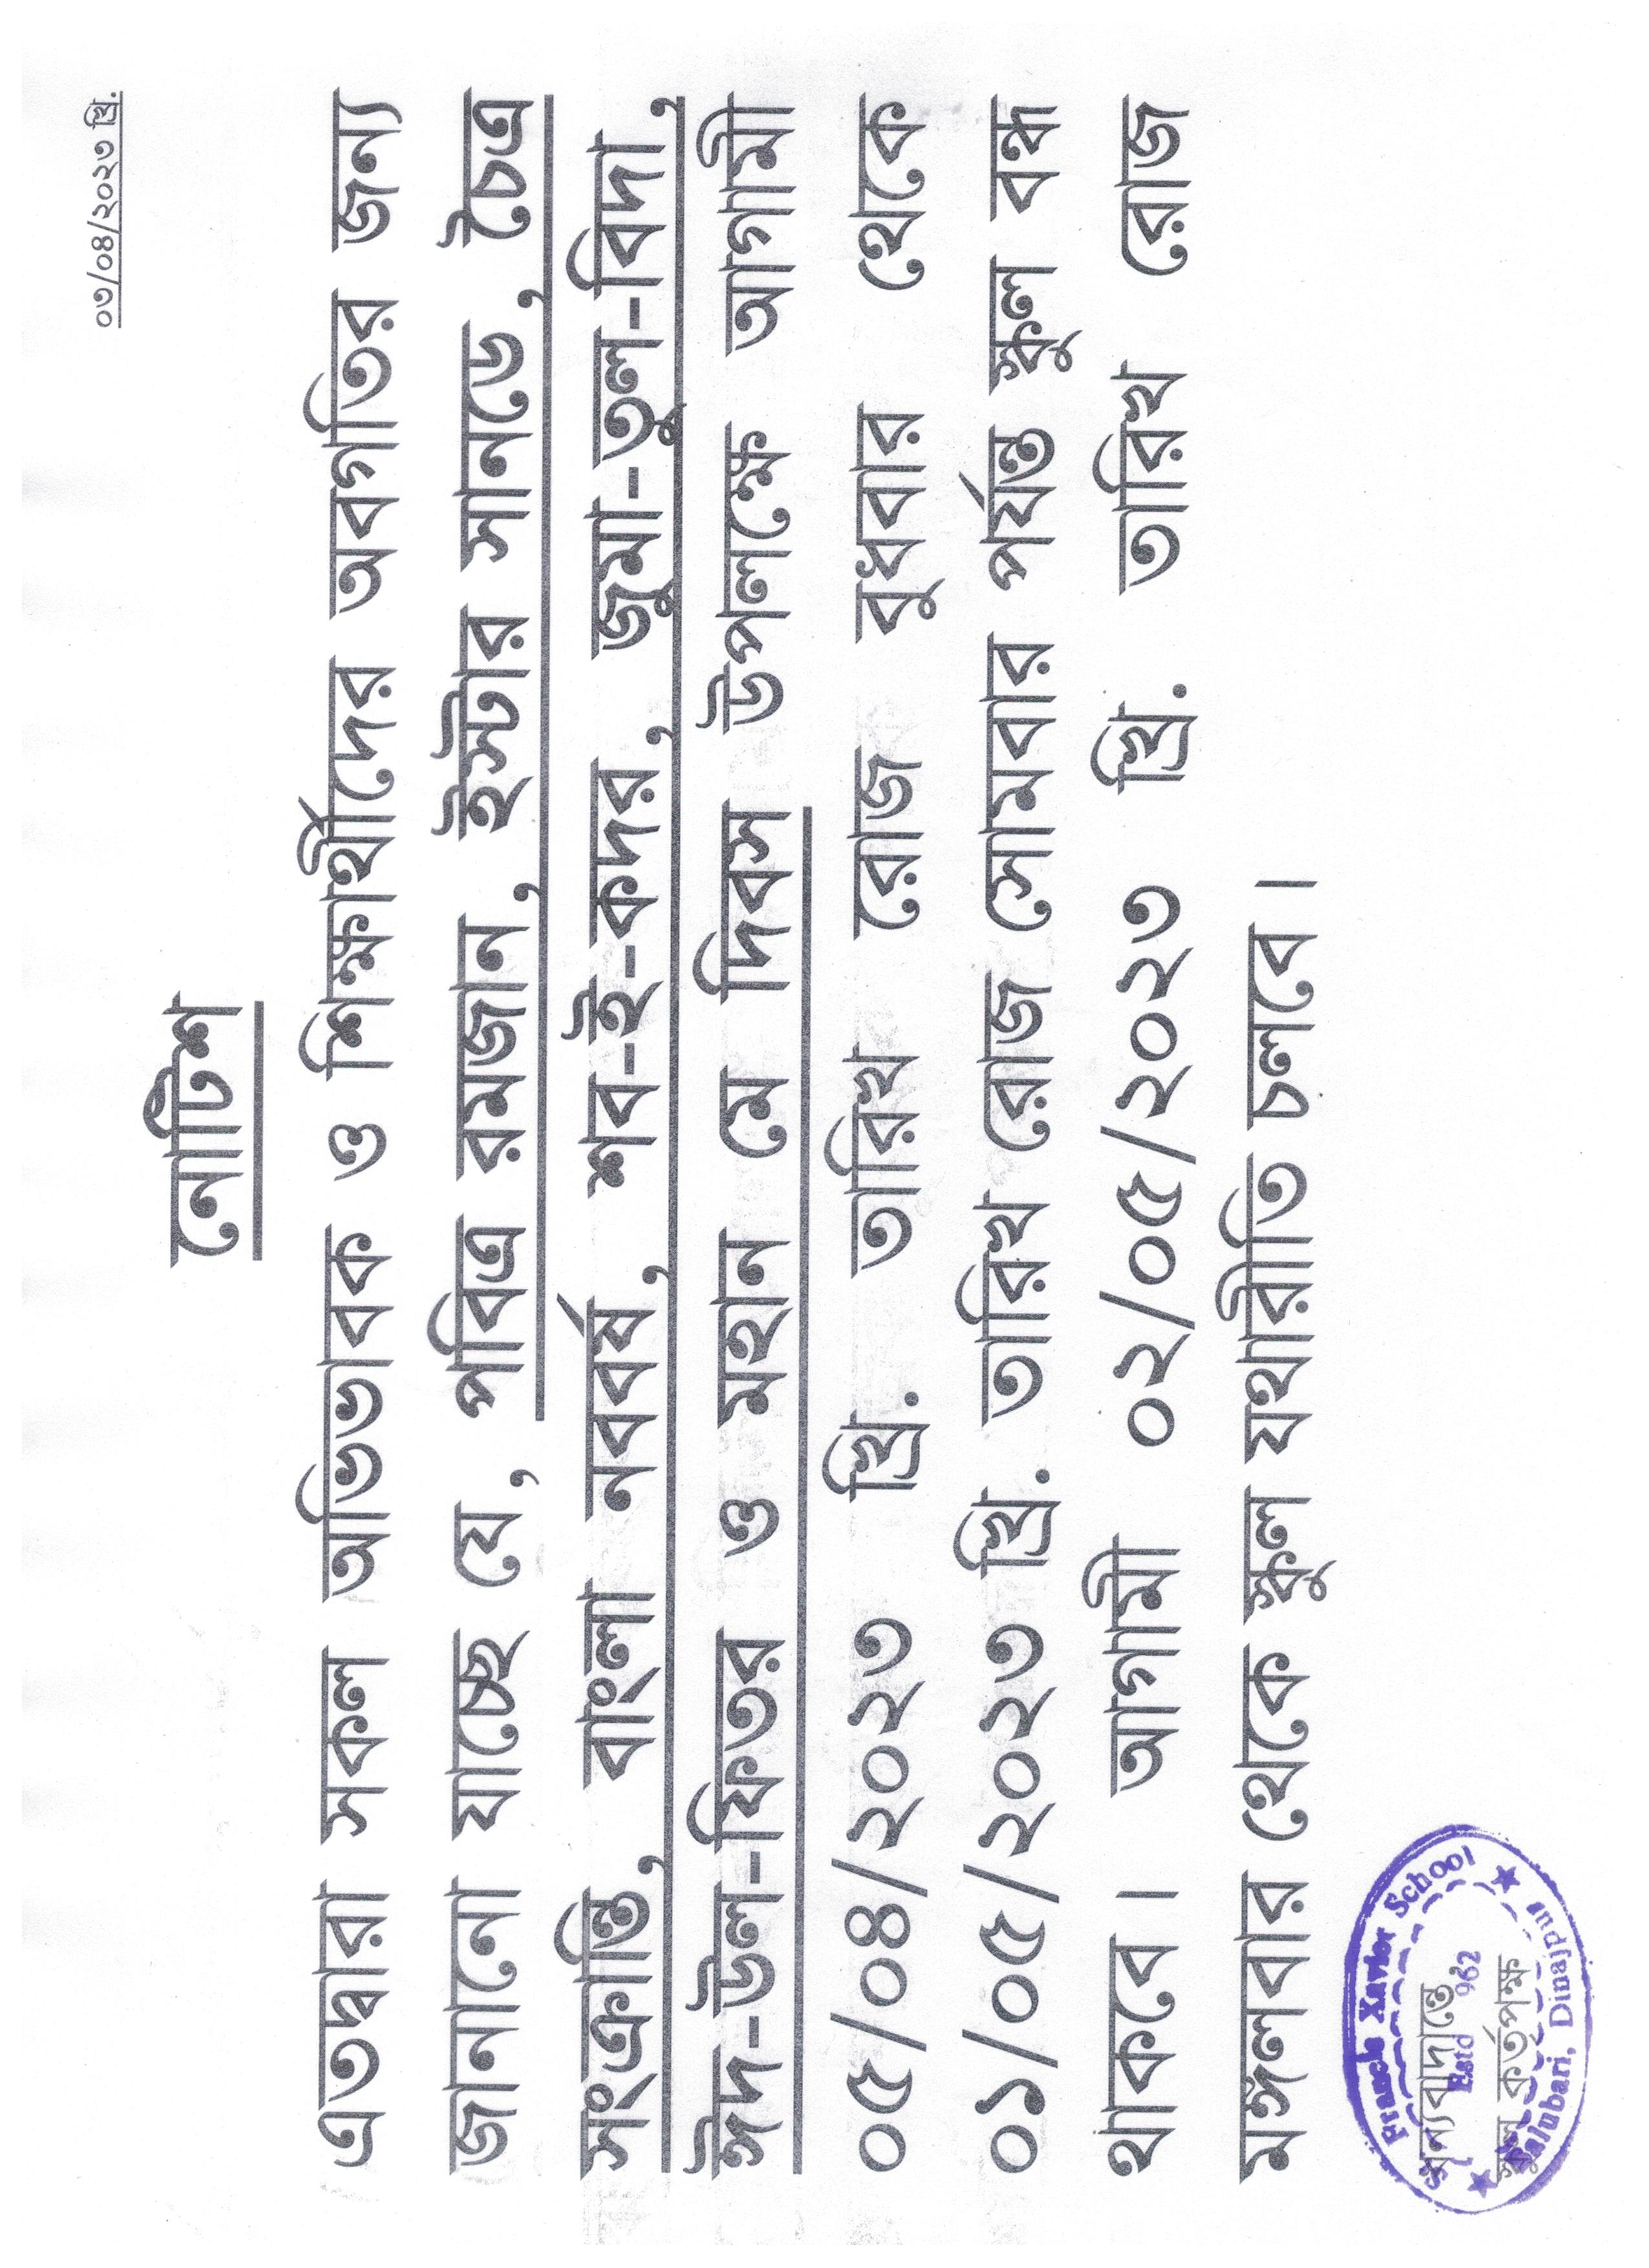 ০৩/০৪/২০২৩ খ্রি.
নোটিশ
এতদ্বারা সকল অভিভাবক ও শিক্ষার্থীদের অবগতির জন্য
জানানো যাচ্ছে যে, পবিত্র রমজান, ইস্টার সানডে, চৈত্র
সংক্রান্তি, বাংলা নববর্ষ, শব-ই-কদর, জুমা-তুল-বিদা,
ঈদ-উল-ফিতর ও মহান মে দিবস উপলক্ষে আগামী
০৫/০৪/২০২৩ খ্রি. তারিখ রোজ বুধবার থেকে
০১/০৫/২০২৩ খ্রি. তারিখ রোজ সোমবার পর্যন্ত স্কুল বন্ধ
থাকবে। আগামী ০২/০৫/২০২৩ খ্রি. তারিখ রোজ
মঙ্গলবার থেকে স্কুল যথারীতি চলবে।
ধন্যবাদান্তে
স্কুল কর্তৃপক্ষ
Xavier School
Estd 962
Dinajpur